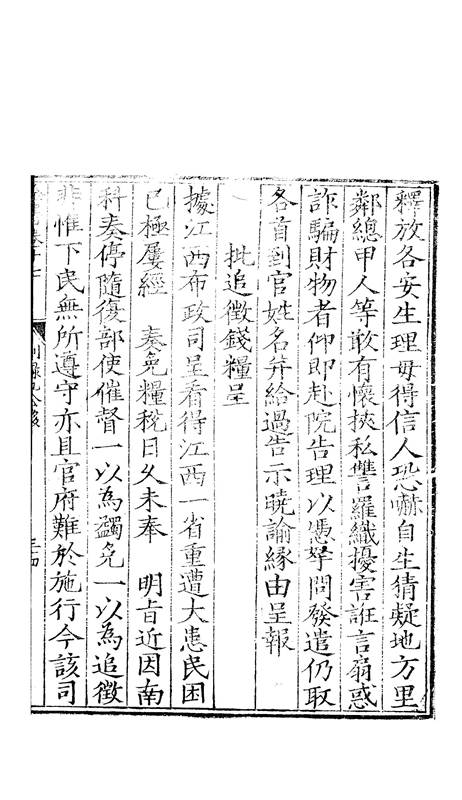 釋放各安生理毋得信人恐嚇自生猜疑地方里
鄰總甲人等敢有懷挾私讐羅織擾害誑言扇惑
詐騙財物者仰即赴院告理以憑拏問發遣仍取
各首到官姓名幷給過告示曉諭緣由呈報
批追徵錢糧呈
據江西布政司呈看得江西一省重遭大患民困
已極屢經　奏免糧稅日久未奉　明旨近因南
科奏停隨復部使催督一以為蠲免一以為追徵
非惟下民無所遵守亦且官府難於施行今該司
三十四